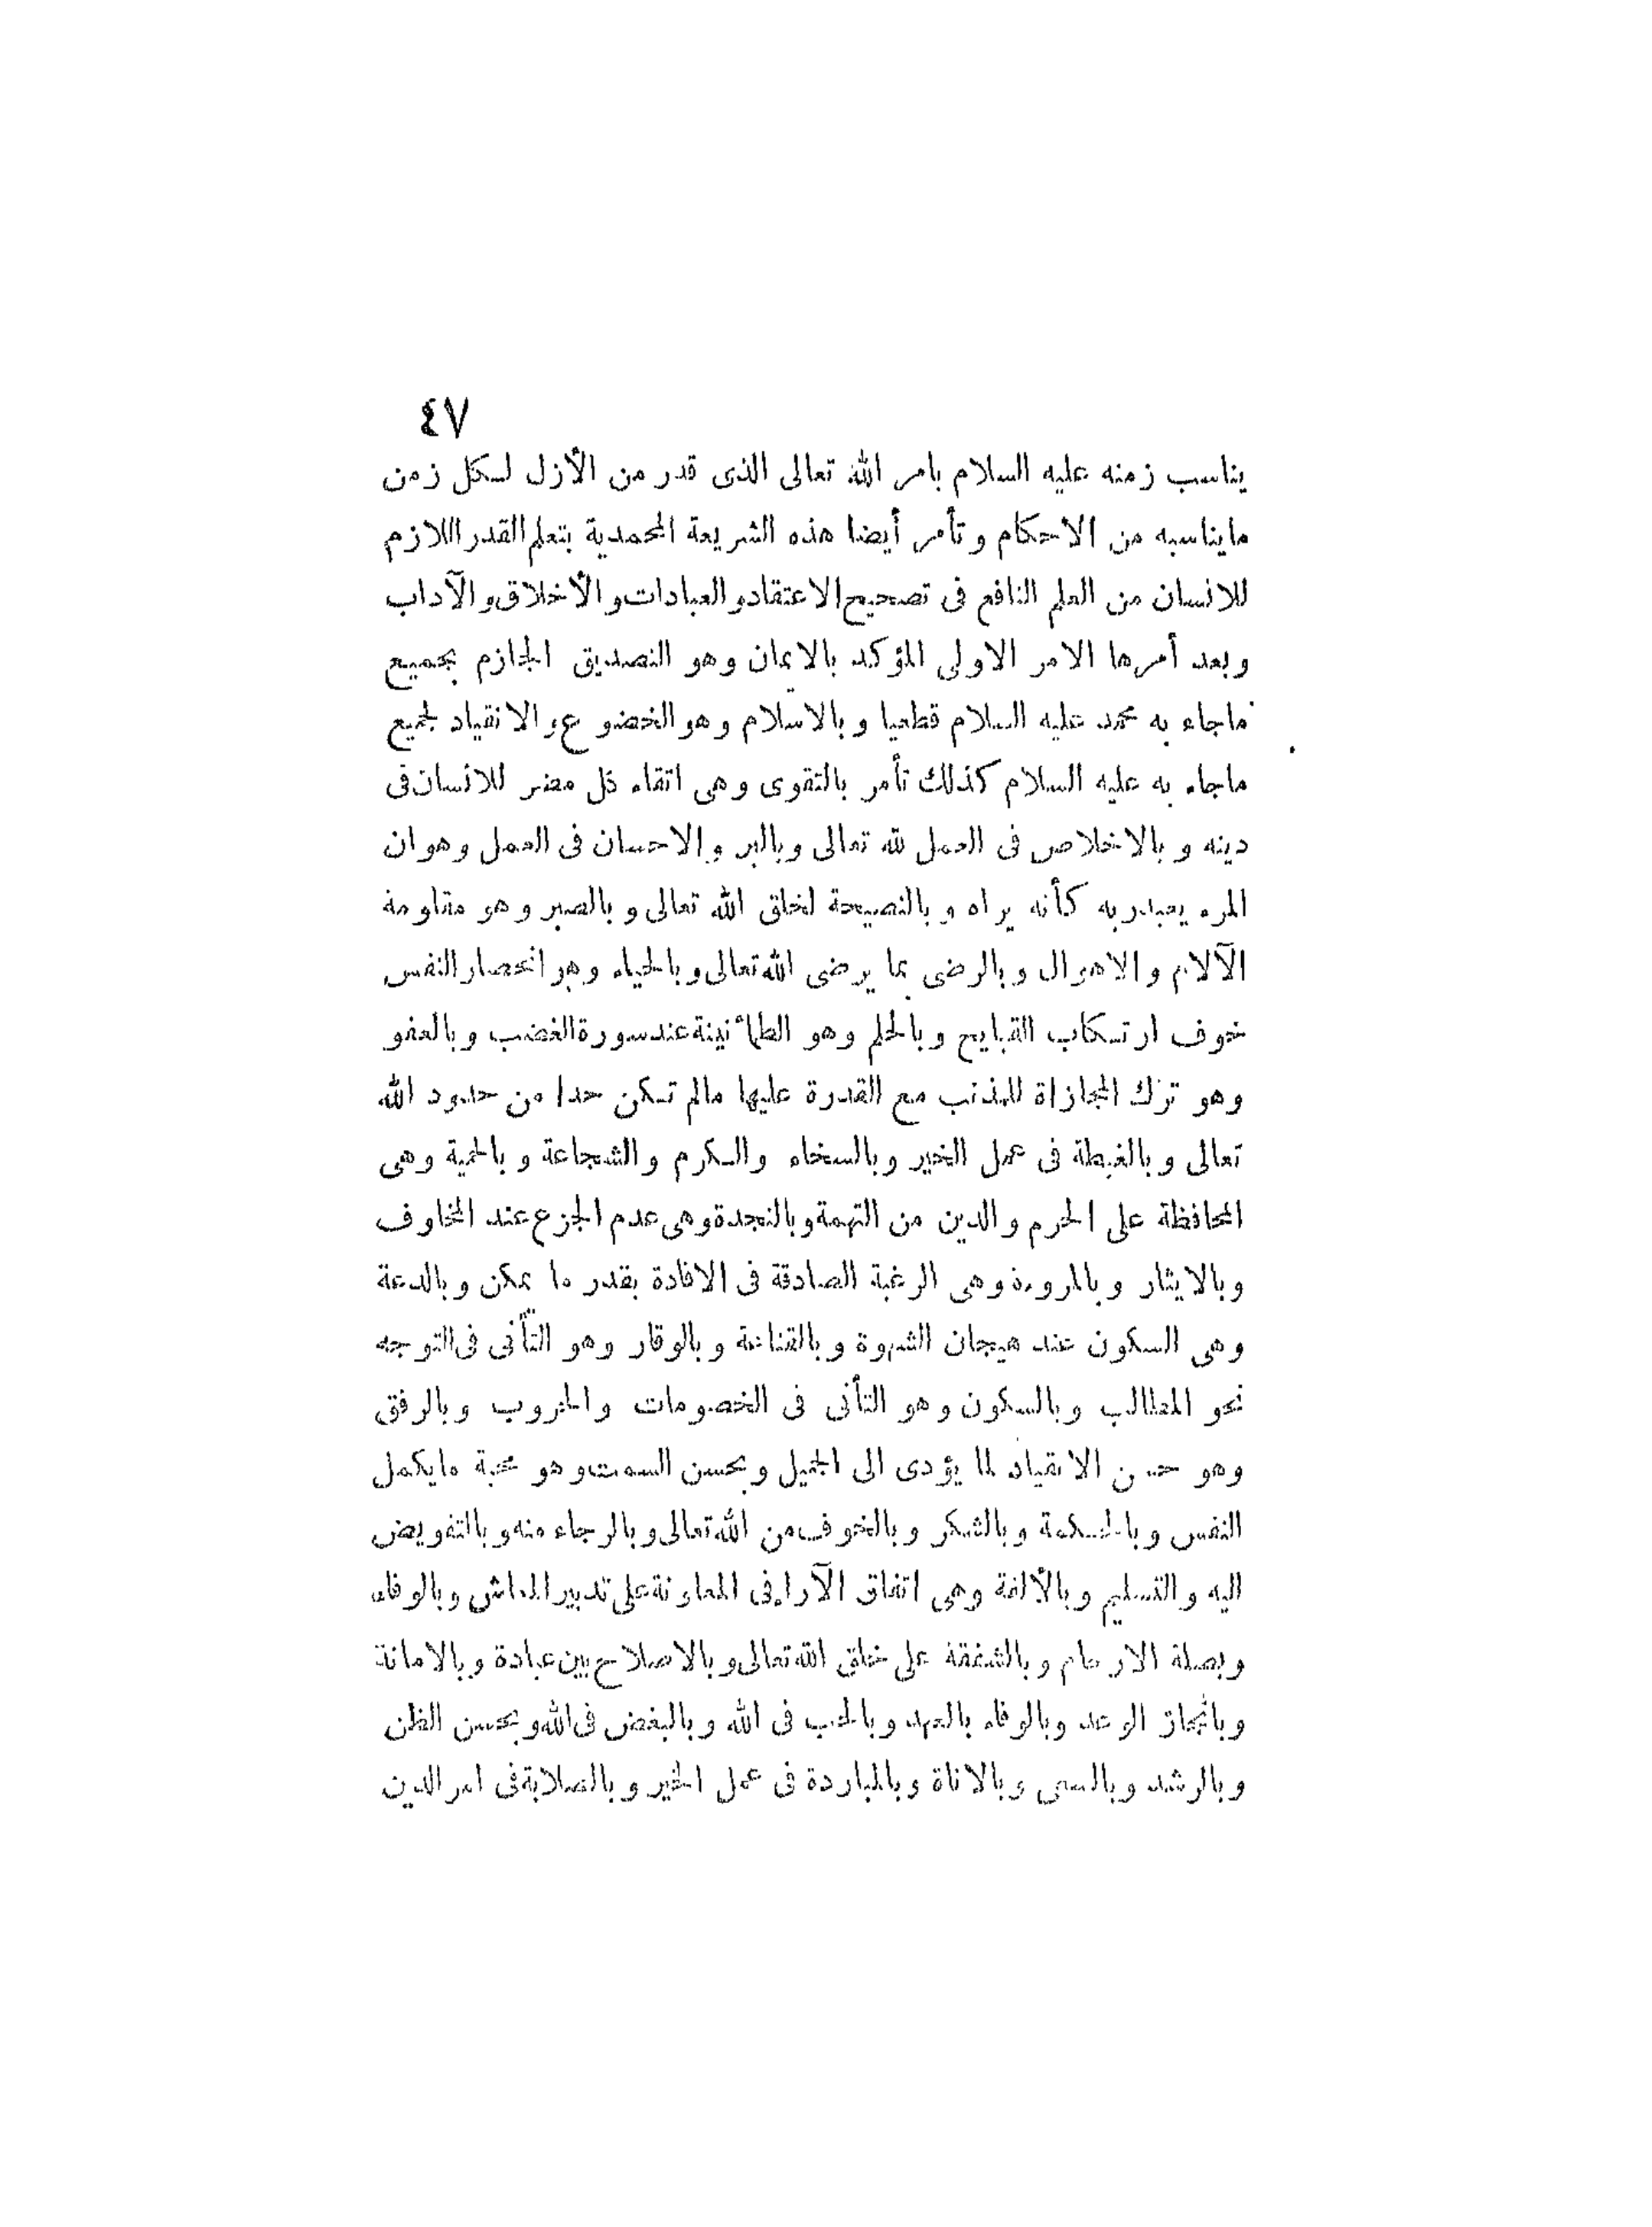 ٤٧
يناسب زمنه عليه السلام بامر الله تعالى الذى قدر من الأزل لكل زمن
مايناسبه من الاحكام وتأمر أيضا هذه الشريعة المحمدية بتعلم القدر اللازم
للانسان من العلم النافع فى تصحيح الاعتقاد والعبادات والأخلاق والآداب
وبعد أمرها الامر الاولى المؤكد بالايمان وهو التصديق الجازم بجميع
ماجاء به محمد عليه السلام قطعيا وبالاسلام وهو الخضوع والانقياد لجميع
ماجاء به عليه السلام كذلك تأمر بالتقوى وهى اتقاء كل مضر للانسان فى
دينه وبالاخلاص فى العمل لله تعالى وبالبر والاحسان فى العمل وهو ان
المرء يعبد ربه كأنه يراه وبالنصيحة لخلق الله تعالى وبالصبر وهو مقاومة
الآلام والاهوال وبالرضى بما يرضى الله تعالى وبالحياء وهو انحصار النفس
خوف ارتكاب القبايح وبالحلم وهو الطمأنينة عند سورة الغضب وبالعفو
وهو ترك المجازاة للمذنب مع القدرة عليها مالم تكن حدا من حدود الله
تعالى وبالغبطة فى عمل الخير وبالسخاء والكرم والشجاعة وبالحمية وهى
المحافظة على الحرم والدين من التهمة وبالنجدة وهى عدم الجزع عند المخاوف
وبالايثار وبالمروءة وهى الرغبة الصادقة فى الافادة بقدر ما يمكن وبالدعة
وهى السكون عند هيجان الشهوة وبالقناعة وبالوقار وهو التأنى فى التوجه
نحو المطالب وبالسكون وهو التأنى فى الخصومات والحروب وبالرفق
وهو حسن الانقياد لما يؤدى الى الجميل وبحسن السمت وهو محبة مايكمل
النفس وبالحكمة وبالشكر وبالخوف من الله تعالى وبالرجاء منه وبالتفويض
اليه والتسليم وبالألفة وهى اتفاق الآراء فى المعاونة على تدبير المعاش وبالوفاء
وبصلة الارحام وبالشفقة على خلق الله تعالى وبالاصلاح بين عبادة وبالامانة
وبانجاز الوعد وبالوفاء بالعهد وبالحب فى الله وبالبغض فى الله وبحسن الظن
وبالرشد وبالسعى وبالاناة وبالمباردة فى عمل الخير وبالصلابة فى امر الدين